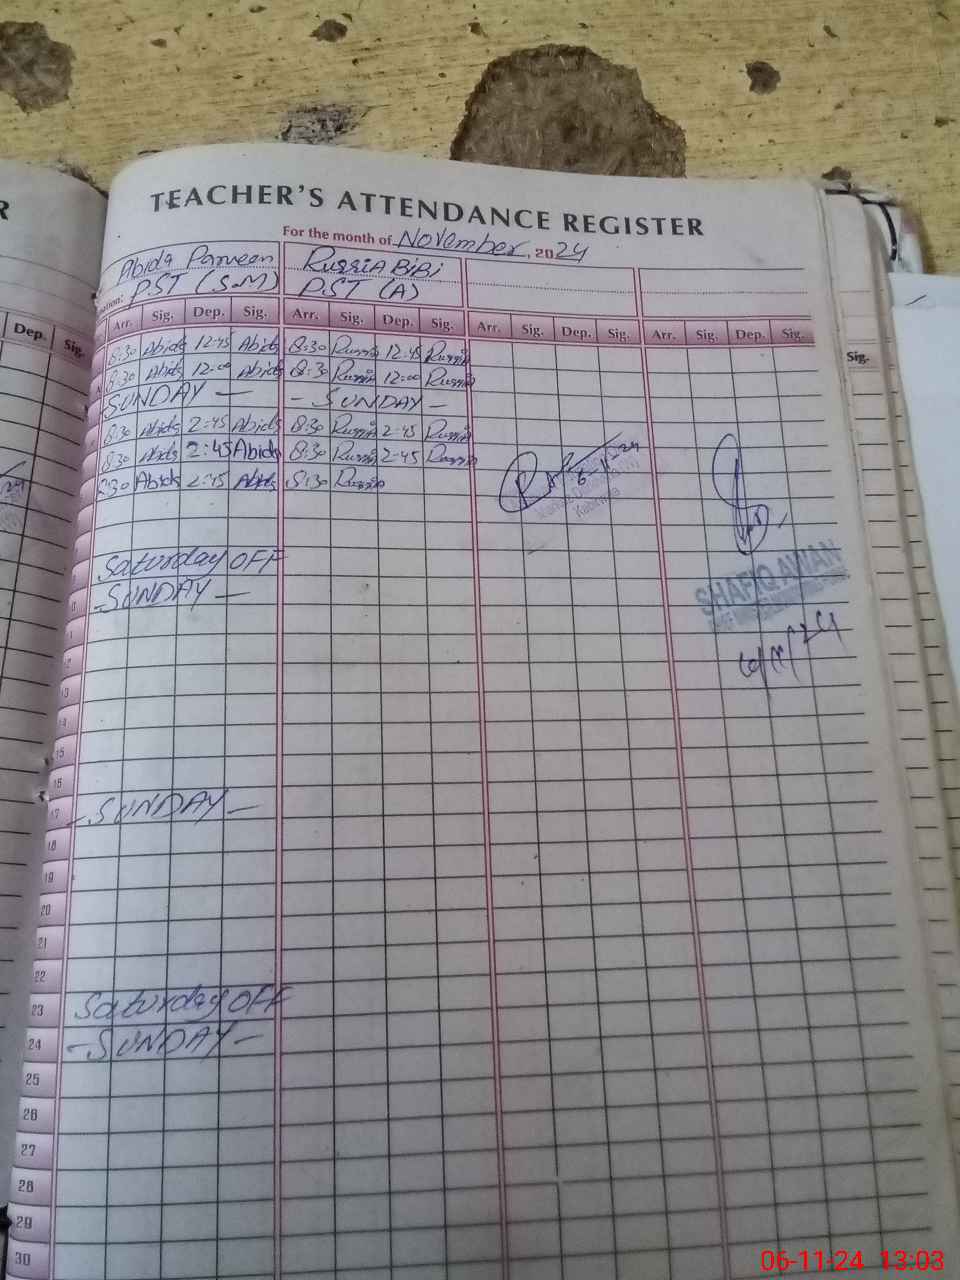 R
TEACHER'S ATTENDANCE REGISTER
For the month of November, 2024
Abida Parveen Russia BiBi
PST (S.M) PST (A)
Dep. Sig. Arr. Sig. Dep. Sig. Arr. Sig. Dep. Sig. Arr. Sig. Dep. Sig. Arr. Sig. Dep. Sig. Sig.
8:30 Abida 12:45 Abida 8:30 Russia 12:45 Russia
8:30 Abida 12:00 Abida 8:30 Russia 12:00 Russia
SUNDAY — - SUNDAY —
8:30 Abida 2:45 Abida 8:30 Russia 2:45 Russia
8:30 Abida 2:45 Abida 8:30 Russia 2:45 Russia
8:30 Abida 2:45 Abida 8:30 Russia
6.11.24
Saturday OFF
-SUNDAY —
SHAFIQ AWAN
13
14
15
16
17 -SUNDAY-
18
19
20
21
22
23 Saturday OFF
24 -SUNDAY-
25
26
27
28
29
30
06-11-24 13:03